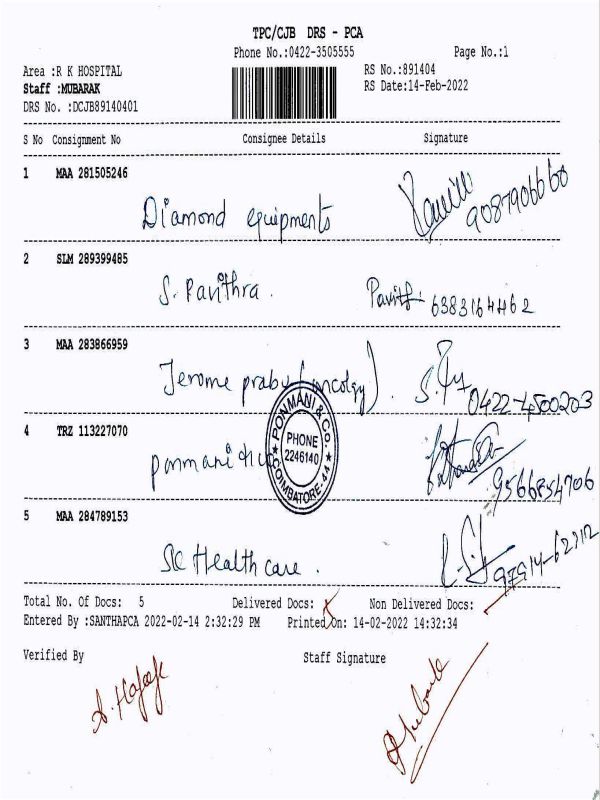 TPC/CJB DRS - PCA
Phone No.:0422-3505555 Page No.:1
Area :R K HOSPITAL RS No.:891404
Staff :MUBARAK RS Date:14-Feb-2022
DRS No. :DCJB89140401
S No Consignment No Consignee Details Signature
1 MAA 281505246
Diamond equipments 9087906660
2 SLM 289399485
S. Pavithra. 6383164462
3 MAA 283866959
Jerome prabu (oncology). 0422-4500203
4 TRZ 113227070
ponmani 9566854706
PONMANI & Co.
PHONE
2246140
COIMBATORE-44
5 MAA 284789153
SK Health care. 97914-62312
Total No. Of Docs: 5 Delivered Docs: Non Delivered Docs:
Entered By :SANTHAPCA 2022-02-14 2:32:29 PM Printed On: 14-02-2022 14:32:34
Verified By Staff Signature
Mubarak